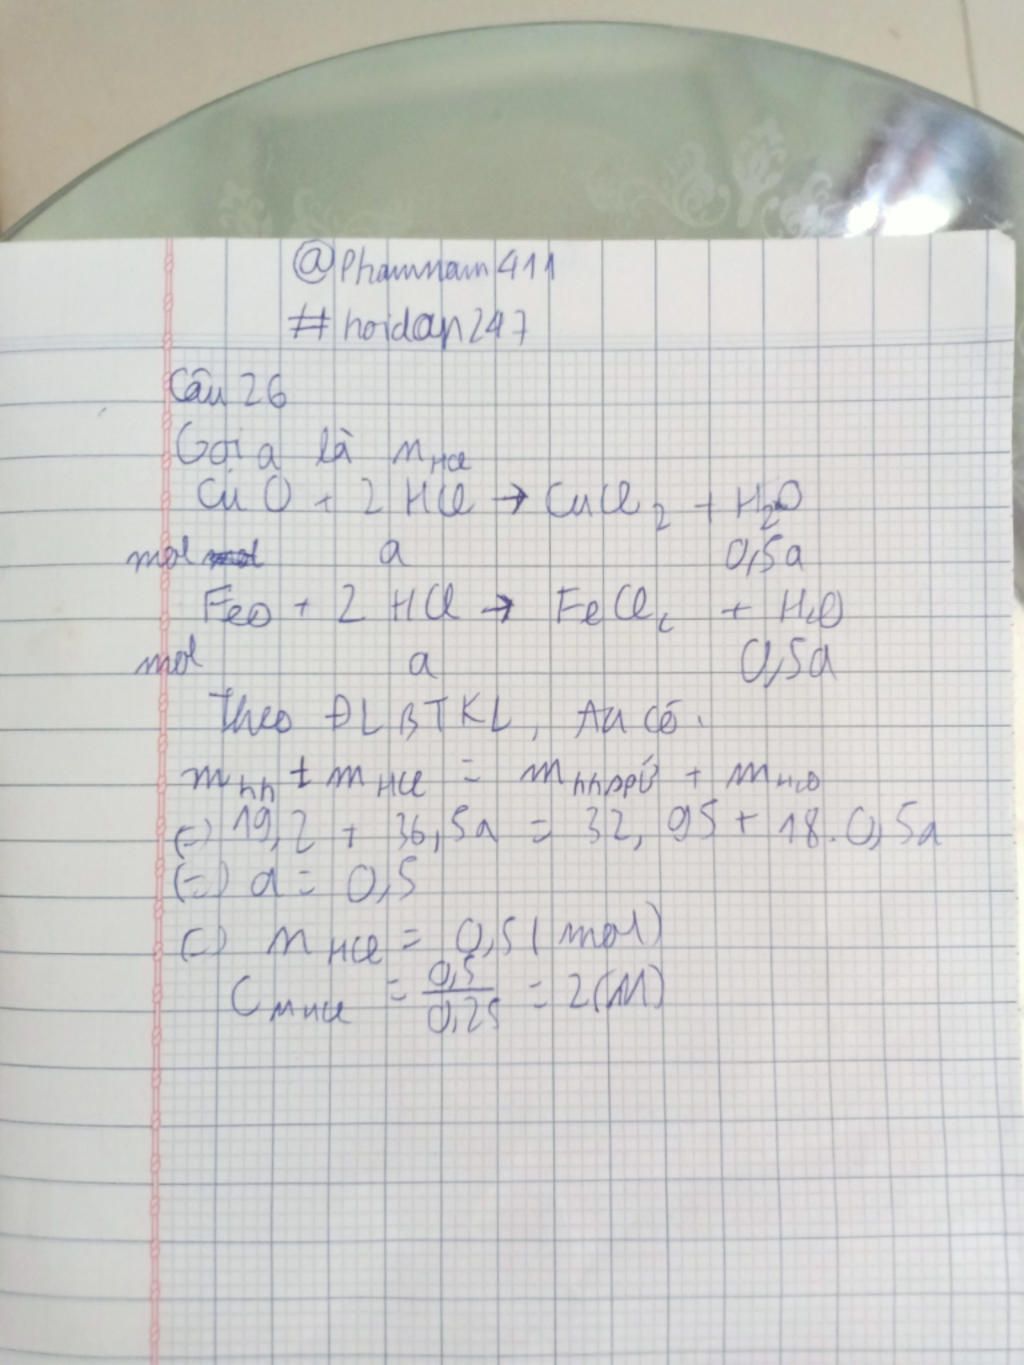 @Phamnam411
#hoidap247
Câu 26
Gọi a là nHCl
CuO + 2HCl → CuCl2 + H2O
mol a 0,5a
FeO + 2HCl → FeCl2 + H2O
mol a 0,5a
Theo ĐLBTKL, ta có.
mhh + mHCl = mhhspứ + mH2O
(=) 19,2 + 36,5a = 32,95 + 18.0,5a
(=) a = 0,5
(=) nHCl = 0,5 (mol)
CMHCl = 0,5/0,25 = 2(M)